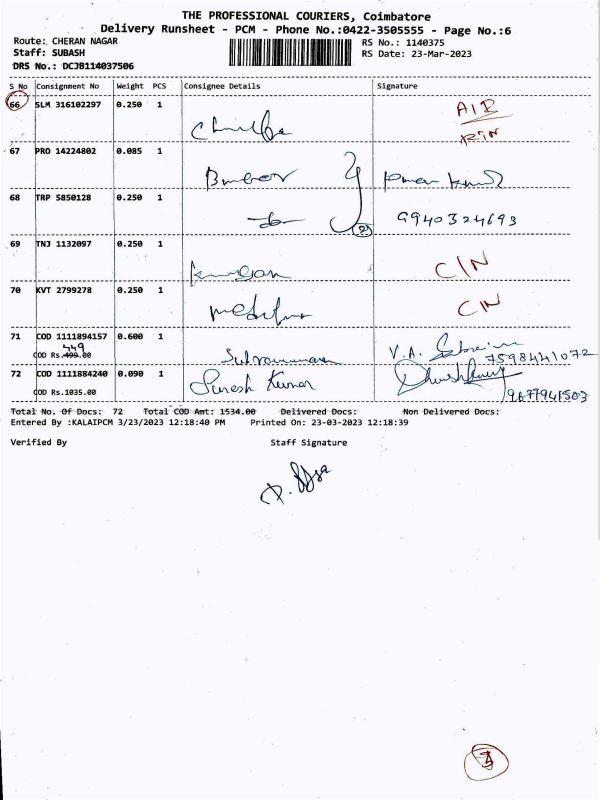 THE PROFESSIONAL COURIERS, Coimbatore
Delivery Runsheet - PCM - Phone No.:0422-3505555 - Page No.:6
Route: CHERAN NAGAR RS No.: 1140375
Staff: SUBASH RS Date: 23-Mar-2023
DRS No.: DCJB114037506
S No Consignment No Weight PCS Consignee Details Signature
66 SLM 316102297 0.250 1 AIR
67 PRO 14224802 0.085 1
68 TRP 5850128 0.250 1 9940324693
69 TNJ 1132097 0.250 1 C/N
70 KVT 2799278 0.250 1 C/N
71 COD 1111894157 0.600 1 V.A.
449
COD Rs.499.00 7598441072
72 COD 1111884240 0.090 1 Suresh Kumar
COD Rs.1035.00 9677941503
Total No. Of Docs: 72 Total COD Amt: 1534.00 Delivered Docs: Non Delivered Docs:
Entered By :KALAIPCM 3/23/2023 12:18:40 PM Printed On: 23-03-2023 12:18:39
Verified By Staff Signature